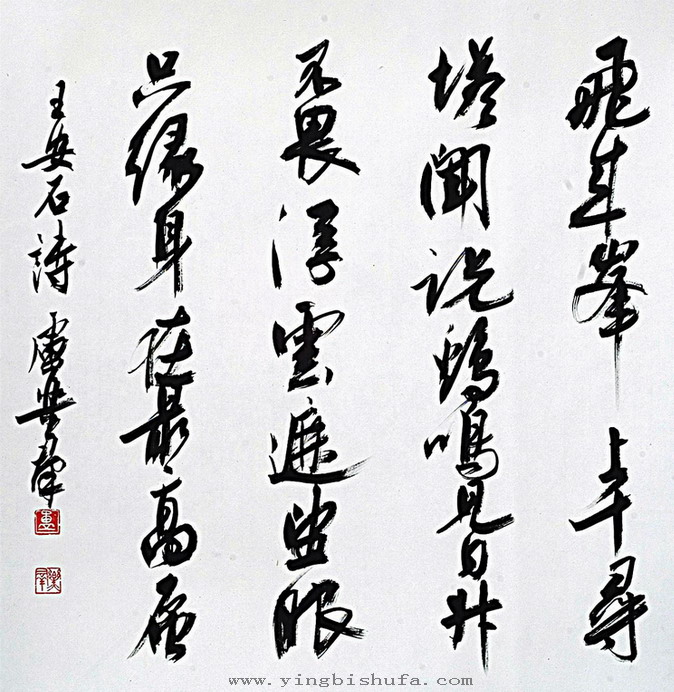 飛来峯 上千尋
塔聞说鷄鳴見日升
不畏浮雲遮望眼
只緣身在最高層
王安石詩
www.yingbishufa.com